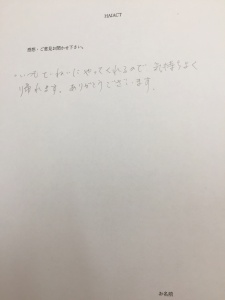 HAIACT
感想・ご意見お聞かせ下さい。
いつもていねいにやってくれるので 気持ちよく
帰れます。ありがとうございます。
お名前